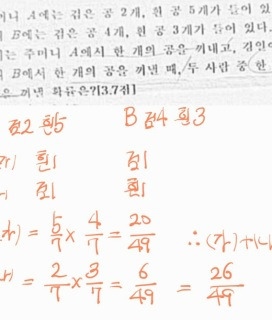 머니 A에는 검은 공 2개, 흰 공 5개가 들어 있
B에는 검은 공 4개, 흰 공 3개가 들어 있다.
는 주머니 A에서 한 개의 공을 꺼내고,
B에서 한 개의 공을 꺼낼 때, 두 사람 중 한
꺼낼 확률은?[3.7점]
검2 흰5 B 검4 흰3
흰1 검1
검1 흰1
가) = 5/7 × 4/7 = 20/49 ∴ (가)+(나
= 2/7 × 3/7 = 6/49 = 26/49